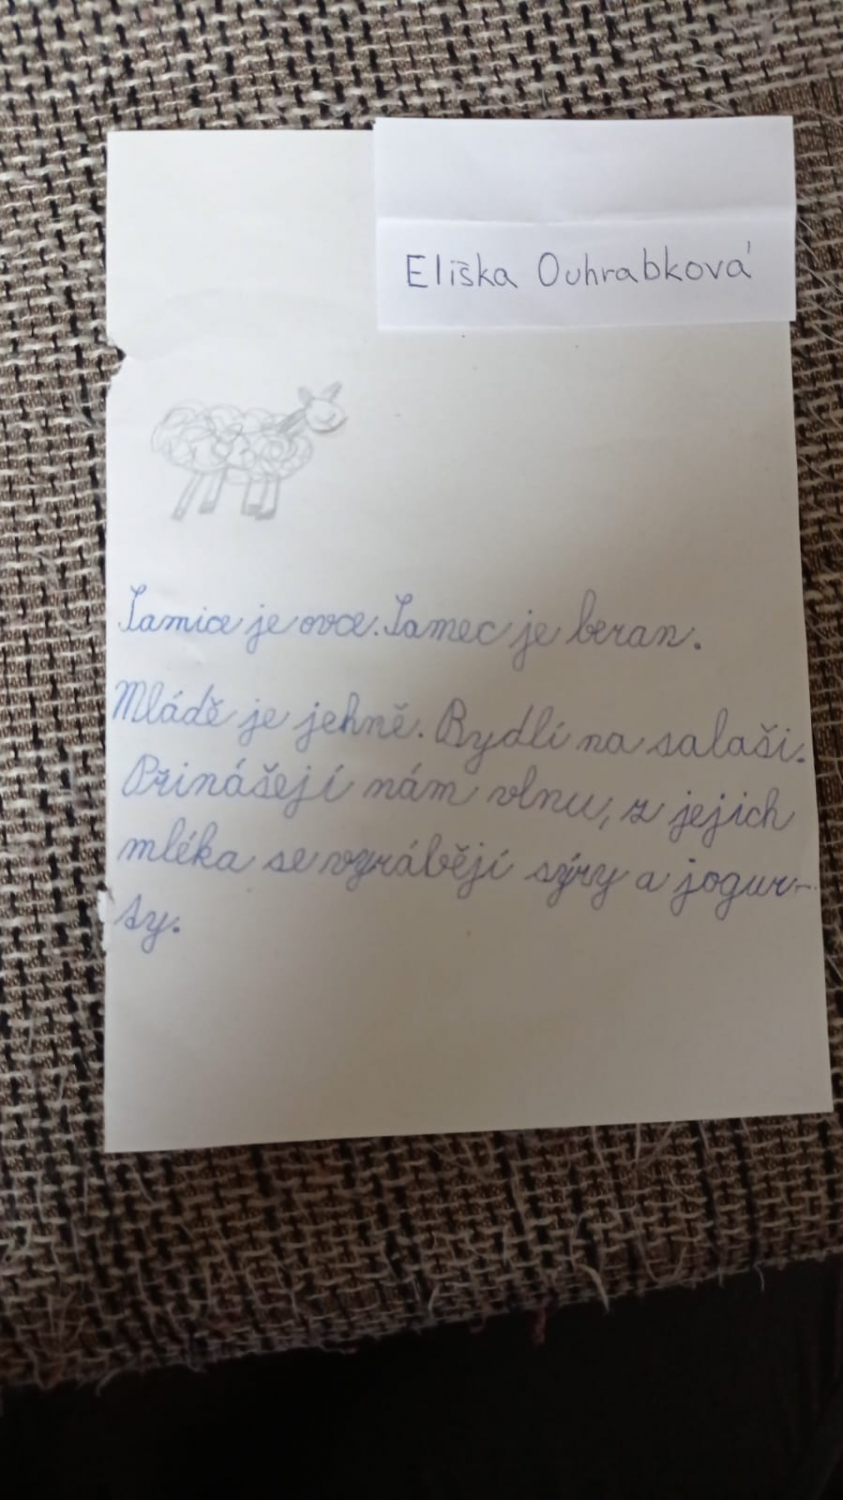 Eliška Ouhrabková
Samice je ovce. Samec je beran.
Mládě je jehně. Bydlí na salaši.
Přinášejí nám vlnu, z jejich
mléka se vyrábějí sýry a jogur-
ty.